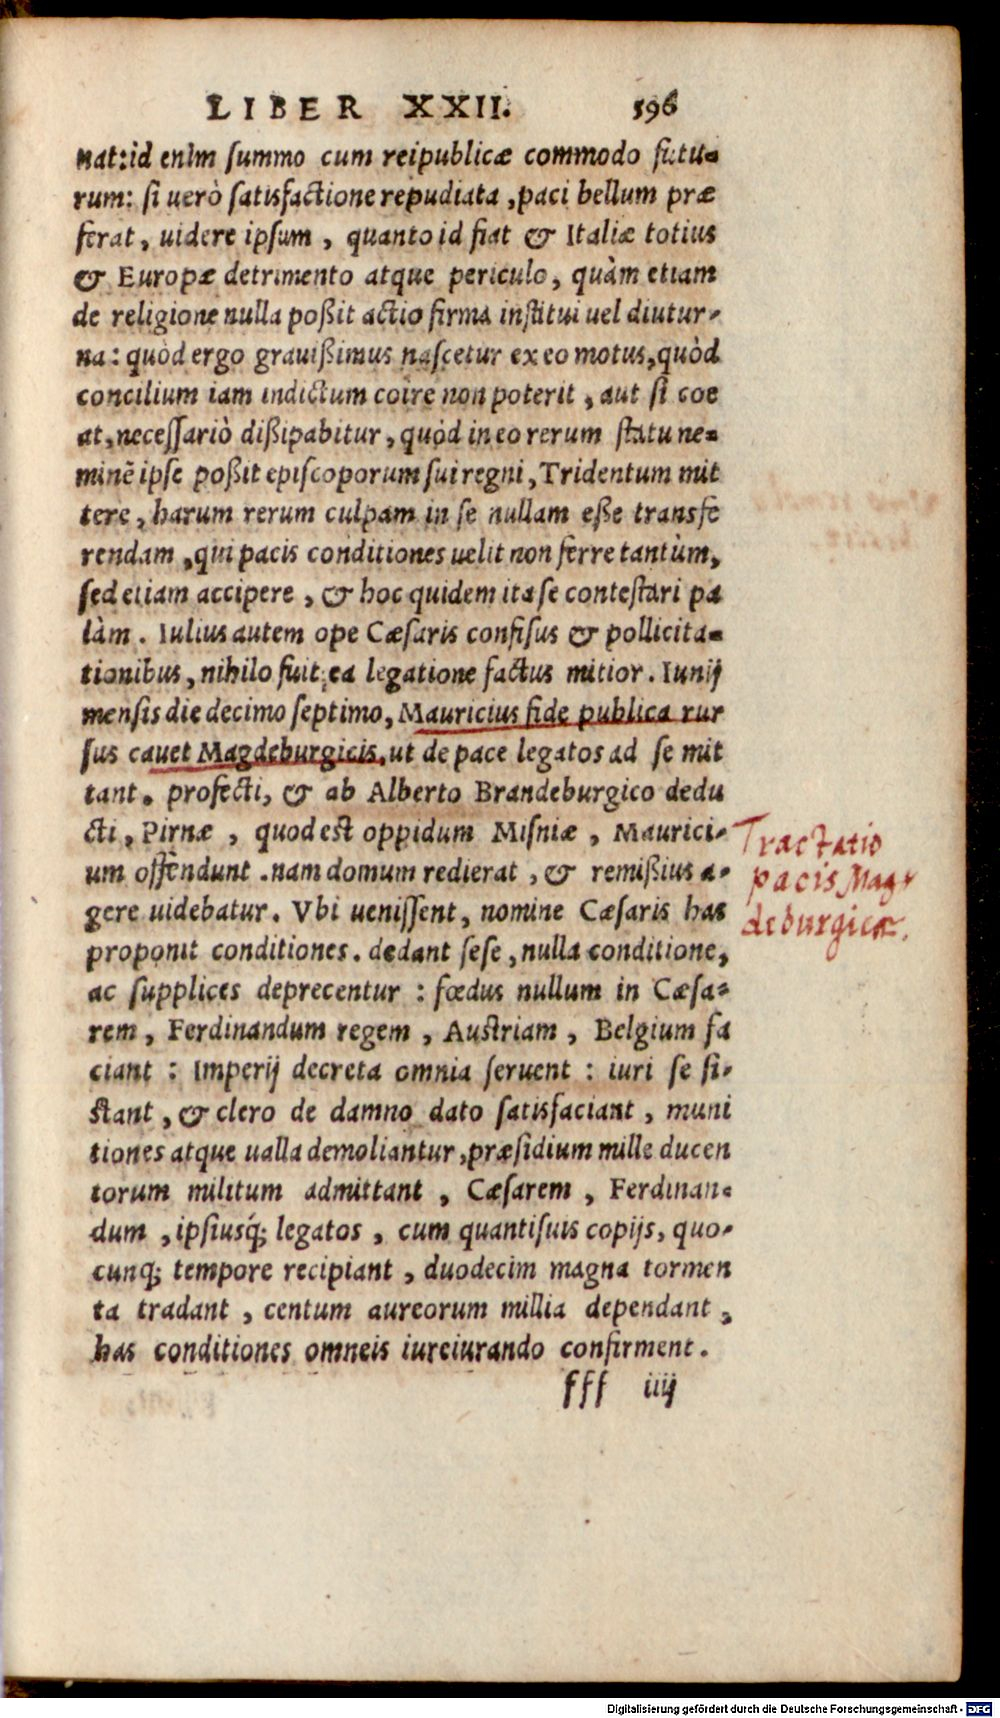 LIBER XXII. 596
nat: id enim summo cum reipublicæ commodo futu-
rum: si uerò satisfactione repudiata, paci bellum præ
ferat, uidere ipsum, quanto id fiat & Italiæ totius
& Europæ detrimento atque periculo, quàm etiam
de religione nulla poßit actio firma institui uel diutur-
na: quòd ergo grauißimus nascetur ex eo motus, quòd
concilium iam indictum coire non poterit, aut si coe
at, necessariò dißipabitur, quòd in eo rerum statu ne-
minẽ ipse poßit episcoporum sui regni, Tridentum mit
tere, harum rerum culpam in se nullam eße transfe
rendam, qui pacis conditiones uelit non ferre tantùm,
sed etiam accipere, & hoc quidem ita se contestari pa
làm. Iulius autem ope Cæsaris confisus & pollicita-
tionibus, nihilo fuit ea legatione factus mitior. Iunij
mensis die decimo septimo, Mauricius fide publica rur
sus cauet Magdeburgicis, ut de pace legatos ad se mit
tant. profecti, & ab Alberto Brandeburgico dedu
cti, Pirnæ, quod est oppidum Misniæ, Maurici-
um offendunt. nam domum redierat, & remißius a-
gere uidebatur. Vbi uenissent, nomine Cæsaris has
proponit conditiones. dedant sese, nulla conditione,
ac supplices deprecentur: fœdus nullum in Cæsa-
rem, Ferdinandum regem, Austriam, Belgium fa
ciant: Imperij decreta omnia seruent: iuri se si-
stant, & clero de damno dato satisfaciant, muni
tiones atque ualla demoliantur, præsidium mille ducen
torum militum admittant, Cæsarem, Ferdinan-
dum, ipsiusq́; legatos, cum quantisuis copijs, quo-
cunq; tempore recipiant, duodecim magna tormen
ta tradant, centum aureorum millia dependant,
has conditiones omneis iureiurando confirment.
fff iiij
Tractatio
pacis Mag-
deburgicæ.
Digitalisierung gefördert durch die Deutsche Forschungsgemeinschaft - DFG